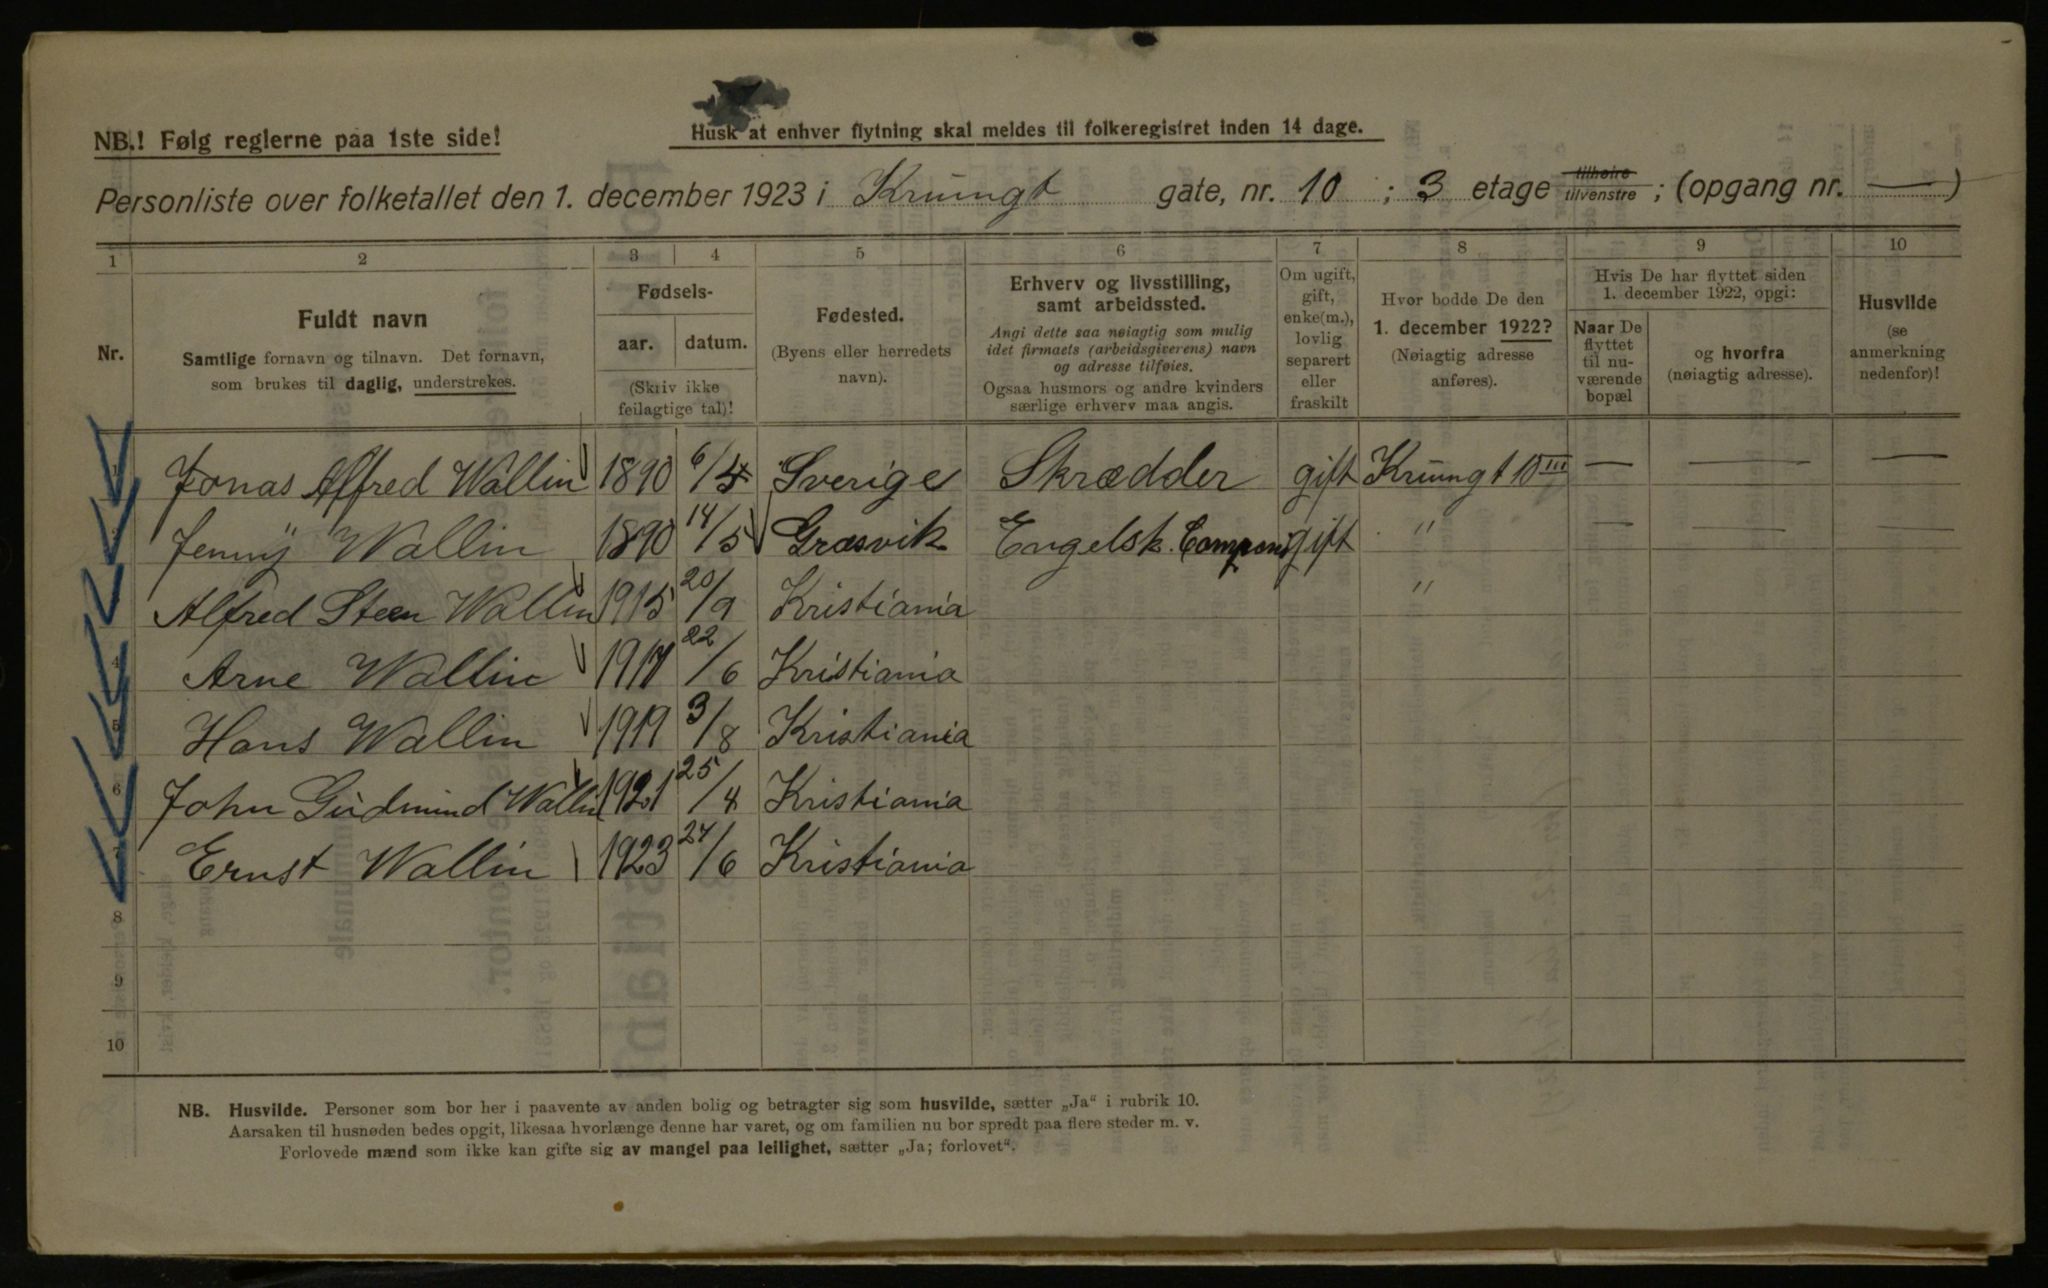 NB.! Følg reglerne paa 1ste side!
Husk at enhver flytning skal meldes til folkeregistret inden 14 dage.
Personliste over folketallet den 1. december 1923 i Krumgt gate, nr. 10 ; 3 etage tilhøire tilvenstre ; (opgang nr. — )
1 2 3 4 5 6 7 8 9 10
Nr.
Fuldt navn
Samtlige fornavn og tilnavn. Det fornavn,
som brukes til daglig, understrekes.
Fødsels-
aar. datum.
(Skriv ikke
feilagtige tal)!
Fødested.
(Byens eller herredets
navn).
Erhverv og livsstilling,
samt arbeidssted.
Angi dette saa nøiagtig som mulig
idet firmaets (arbeidsgiverens) navn
og adresse tilføies.
Ogsaa husmors og andre kvinders
særlige erhverv maa angis.
Om ugift,
gift,
enke(m.),
lovlig
separert
eller
fraskilt
Hvor bodde De den
1. december 1922?
(Nøiagtig adresse
anføres).
Hvis De har flyttet siden
1. december 1922, opgi:
Naar De
flyttet
til nu-
værende
bopæl
og hvorfra
(nøiagtig adresse).
Husvilde
(se
anmerkning
nedenfor)!
1 Jonas Alfred Wallin 1890 6/4 Sverige Skrædder gift Krumgt 10 III — — —
2 Jenny Wallin 1890 14/5 Græsvik Engelsk. gift " — — —
Alfred Steen Wallin 1915 20/9 Kristiania "
4 Arne Wallin 1917 22/6 Kristiania
5 Hans Wallin 1919 3/8 Kristiania
6 John Gudmund Wallin 1921 25/4 Kristiania
7 Ernst Wallin 1923 24/6 Kristiania
8
9
10
NB. Husvilde. Personer som bor her i paavente av anden bolig og betragter sig som husvilde, sætter „Ja“ i rubrik 10.
Aarsaken til husnøden bedes opgit, likesaa hvorlænge denne har varet, og om familien nu bor spredt paa flere steder m. v.
Forlovede mænd som ikke kan gifte sig av mangel paa leilighet, sætter „Ja; forlovet“.